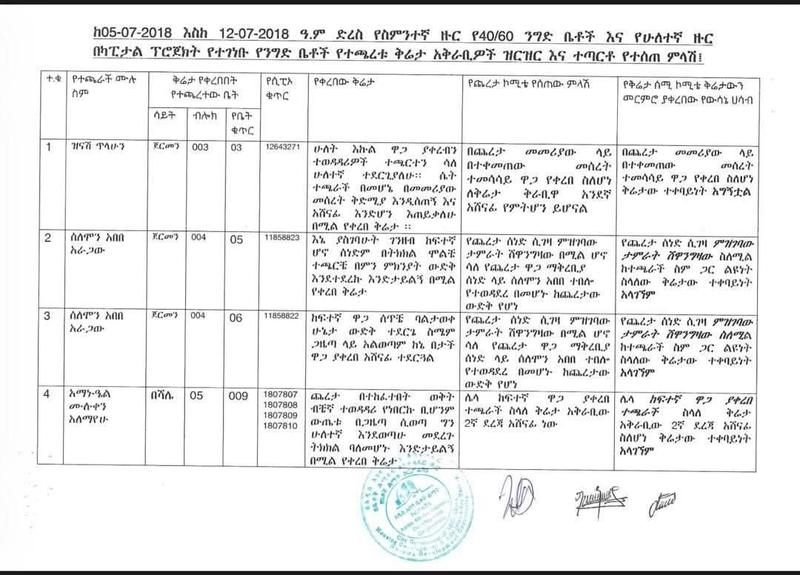 ከ05-07-2018 እስከ 12-07-2018 ዓ.ም ድረስ የስምንተኛ ዙር የ40/60 ንግድ ቤቶች እና የሁለተኛ ዙር
በካፒታል ፕሮጀክት የተገነቡ የንግድ ቤቶች የተጫረቱ ቅሬታ አቅራቢዎች ዝርዝር እና ተጣርቶ የተሰጠ ምላሽ፤
ተ.ቁ
የተጫራች ሙሉ
ስም
ቅሬታ የቀረበበት
የተጫረተው ቤት
ሳይት
ብሎክ
የቤት
ቁጥር
የሲፒኦ
ቁጥር
የቀረበው ቅሬታ
የጨረታ ኮሚቴ የሰጠው ምላሽ
የቅሬታ ሰሚ ኮሚቴ ቅሬታውን
መርምሮ ያቀረበው የውሳኔ ሀሳብ
1
ዝናሽ ጥላሁን
ጀርመን
003
03
12643271
ሁለት እኩል ዋጋ ያቀረብን
ተወዳዳሪዎች ተጫርተን ሳለ
ሁለተኛ ተደርጊያለሁ፡፡ ሴት
ተጫራች በመሆኔ በመመሪያው
መሰረት ቅድሚያ እንዲሰጠኝ እና
አሸናፊ እንድሆን እጠይቃለሁ
በሚል የቀረበ ቅሬታ ፡፡
በጨረታ መመሪያው ላይ
በተቀመጠው መስረት
ተመሳሳይ ዋጋ የቀረበ ስለሆነ
ለቅሬታ ቅራቢዋ አንደኛ
አሸናፊ የምትሆን ይሆናል
በጨረታ መመሪያው ላይ
በተቀመጠው መስረት
ተመሳሳይ ዋጋ የቀረበ ስለሆነ
ቅሬታው ተቀባይነት አግኝቷል
2
ሰለሞን አበበ
አራጋው
ጀርመን
004
05
11858823
እኔ ያስገባሁት ገንዘብ ከፍተኛ
ሆኖ ሰነድም በትክክል ሞልቼ
ተጫርቼ በምን ምክንያት ውድቅ
እንደተደረኩ እንድታይልኝ በሚል
የቀረበ ቅሬታ
የጨረታ ሰነድ ሲገዛ ምዝገባው
ታምራት ሸዋንግዛው በሚል ሆኖ
ሳለ የጨረታ ዋጋ ማቅረቢያ
ሰነድ ላይ ሰለሞን አበበ ተብሎ
የተወዳደረ በመሆኑ ከጨረታው
ውድቅ የሆነ
የጨረታ ሰነድ ሲገዛ ምዝገባው
ታምራት ሸዋንግዛው ስለሚል
ከተጫራች ስም ጋር ልዩነት
ስላለው ቅሬታው ተቀባይነት
አላገኘም
3
ሰለሞን አበበ
አራጋው
ጀርመን
004
06
11858822
ከፍተኛ ዋጋ ሰጥቼ ባልታወቀ
ሁኔታ ውድቅ ተደርጌ ስሜም
ጋዜጣ ላይ አልወጣም ከኔ በታች
ዋጋ ያቀረበ አሸናፊ ተደርጓል
የጨረታ ሰነድ ሲገዛ ምዝገባው
ታምራት ሸዋንግዛው በሚል ሆኖ
ሳለ የጨረታ ዋጋ ማቅረቢያ
ሰነድ ላይ ሰለሞን አበበ ተብሎ
የተወዳደረ በመሆኑ ከጨረታው
ውድቅ የሆነ
የጨረታ ሰነድ ሲገዛ ምዝገባው
ታምራት ሸዋንግዛው ስለሚል
ከተጫራች ስም ጋር ልዩነት
ስላለው ቅሬታው ተቀባይነት
አላገኘም
4
አማኑዔል
ሙሉቀን
አለማየሁ
በሻሌ
05
009
1807807
1807808
1807809
1807810
ጨረታ በተከፈተበት ወቅት
ብቸኛ ተወዳዳሪ የነበርኩ ቢሆንም
ውጤቱ በጋዜጣ ሲወጣ ግን
ሁለተኛ እንደወጣሁ መደረጉ
ትክክል ባለመሆኑ እንድታይልኝ
በሚል የቀረበ ቅሬታ
ሌላ ከፍተኛ ዋጋ ያቀረበ
ተጫራች ስላለ ቅሬታ አቅራቢው
2ኛ ደረጃ አሸናፊ ነው
ሌላ ከፍተኛ ዋጋ ያቀረበ
ተጫራች ስላለ ቅሬታ
አቅራቢው 2ኛ ደረጃ አሸናፊ
ስለሆነ ቅሬታው ተቀባይነት
አላገኘም